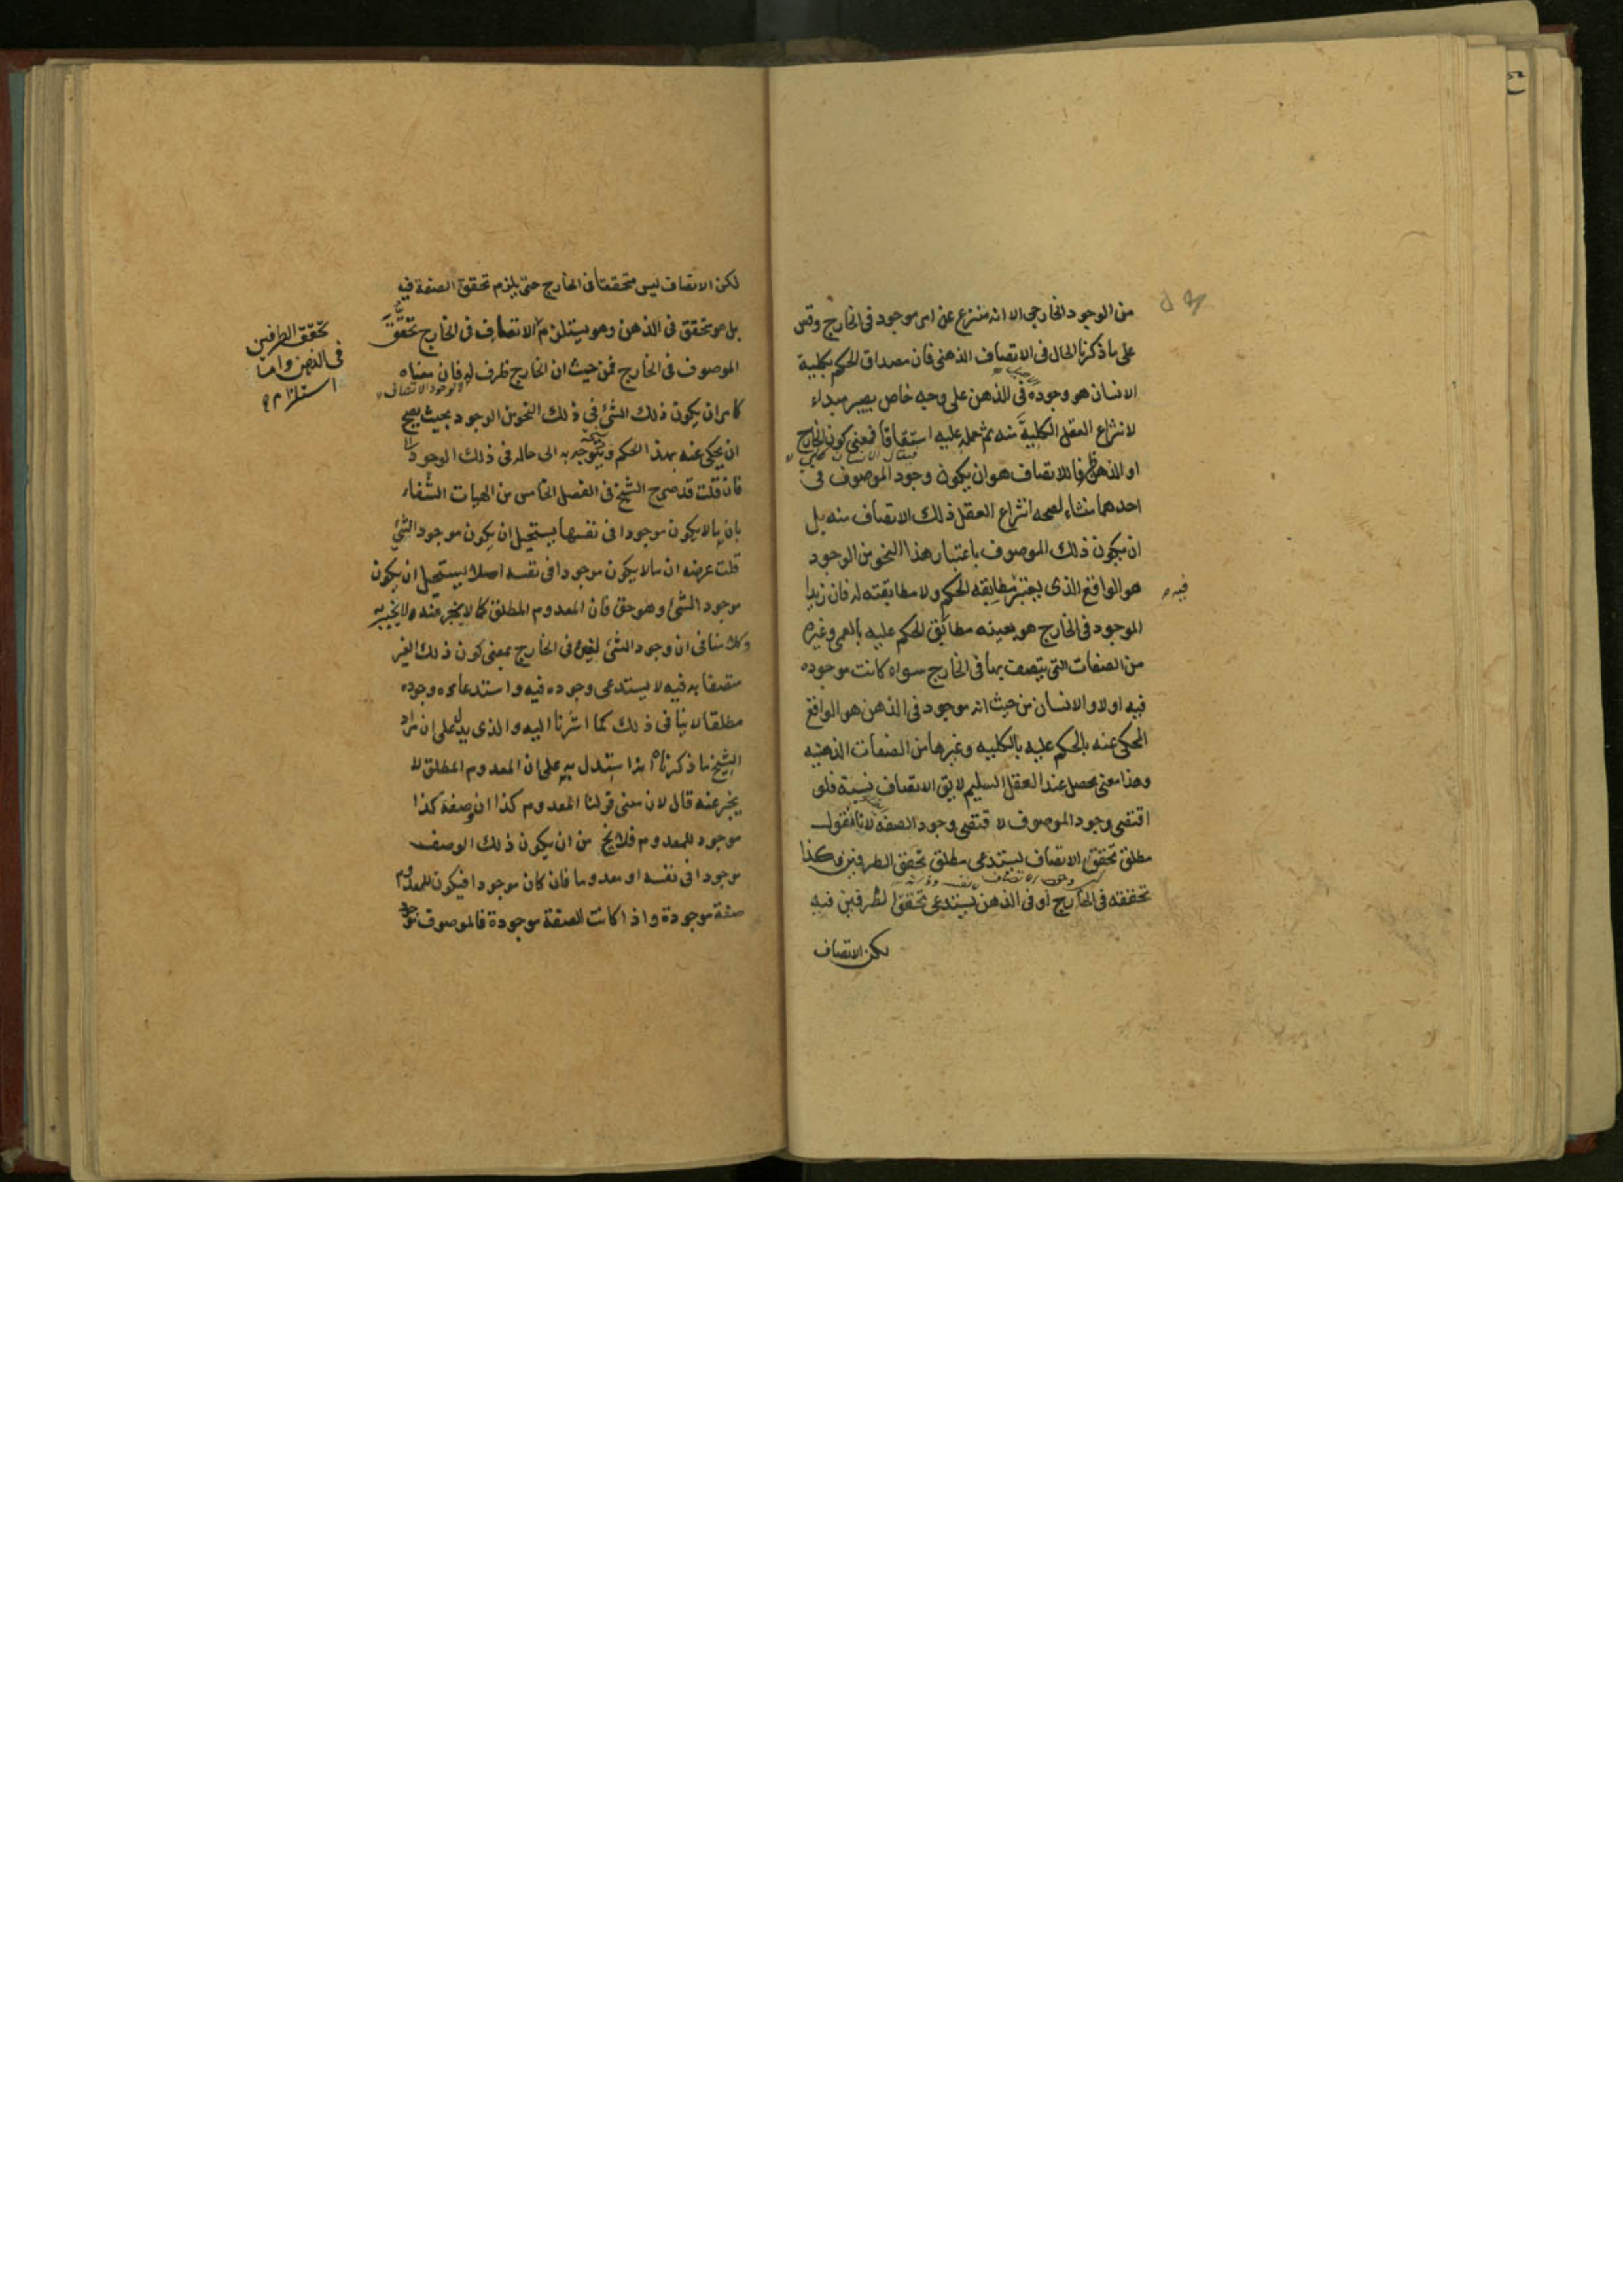 من الوجود الخارجى الا انه منتزع عن امر موجود فى الخارج وقس
على ما ذكرنا الحال فى الاتصاف الذهنى فان مصداق الحكم بكلية
الانسان هو وجوده فى الذهن على وجه خاص يصير مبداء
لانتزاع العقل الكلية منه ثم حمله عليه اشتقاقا فمعنى كون الخارج
او الذهن ظرفا للاتصاف هو ان يكون وجود الموصوف فى
احدهما منشاء لصحه انتزاع العقل ذلك الاتصاف منه بل
ان يكون ذلك الموصوف باعتبار هذا النحو من الوجود
هو الواقع الذى يعتبر مطابقه الحكم ولا مطابقته له فان زيدا
فيه
الموجود فى الخارج هو بعينه مطابق الحكم عليه بالعمى وغيره
من الصفات التى يتصف بها فى الخارج سواء كانت موجوده
فيه اولا والانسان من حيث انه موجود فى الذهن هو الواقع
المحكى عنه بالحكم عليه بالكليه وغيرها من الصفات الذهنيه
وهذا معنى محصل عند العقل السليم لا يق الاتصاف نسبة فلو
اقتضى وجود الموصوف لا قتضى وجود الصفة لانا نقول
مطلق تحقق الاتصاف يستدعى مطلق تحقق الطرفين وكذا
تحققه فى الخارج او فى الذهن يستدعى تحقق الطرفين فيه
لكن الاتصاف
لكن الاتصاف ليس متحققا فى الخارج حتى يلزم تحقق الصفة فيه
بل هو متحقق فى الذهن وهو يستلزم الاتصاف فى الخارج تحقق
تحقق الطرفين
فى الذهن واما
استلزام
الموصوف فى الخارج فمن حيث ان الخارج ظرف له فان معناه
كا مر ان يكون ذلك الشئ فى ذلك النحو من الوجود بحيث يصح
ان يحكى عنه بهذا الحكم ويتوجه به الى حاله فى ذلك الوجود
فان قلت قد صرح الشيخ فى الفصل الخامس من الهيات الشفاء
بان ما لا يكون موجودا فى نفسها يستحيل ان يكون موجود الشئ
قلت غرضه ان ما لا يكون موجودا فى نفسه اصلا يستحيل ان يكون
موجود الشئ وهو حق فان المعدوم المطلق كما لا يخبر عنه لا يخبر به
وكلا منا فى ان وجود الشئ لغيره فى الخارج بمعنى كون ذلك الغير
متصفا به فيه لا يستدعى وجوده فيه واستدعاءه وجوده
مطلقا لا ينا فى ذلك كما اشرنا اليه والذى يدل على ان مراد
الشيخ ما ذكرناه استدل به على ان المعدوم المطلق لا
يخبر عنه قال لان معنى قولنا المعدوم كذا ان صفة كذا
موجود للمعدوم فلا يخ من ان يكون ذلك الوصف
موجودا فى نفسه او معدوما فان كان موجودا فيكون للمعدوم
صفة موجودة واذا كانت الصفة موجودة فالموصوف